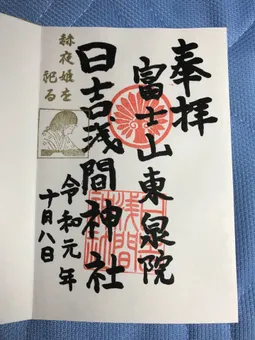 奉拝
富士山東泉院
日吉浅間神社
令和元年
十月八日
赫夜姫を
祀る